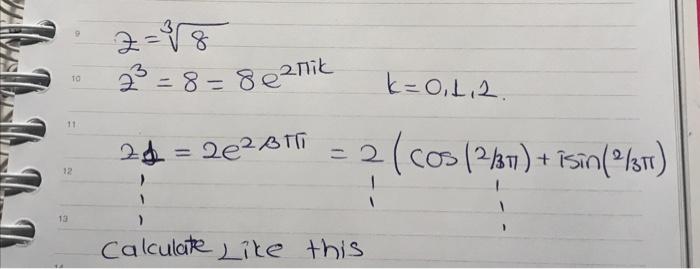 9 z = ∛8
10 z³ = 8 = 8e^2πik k = 0,1,2.
11
z1 = 2e^2/3πi = 2 (cos(2/3π) + isin(2/3π)
12
13
Calculate Like this